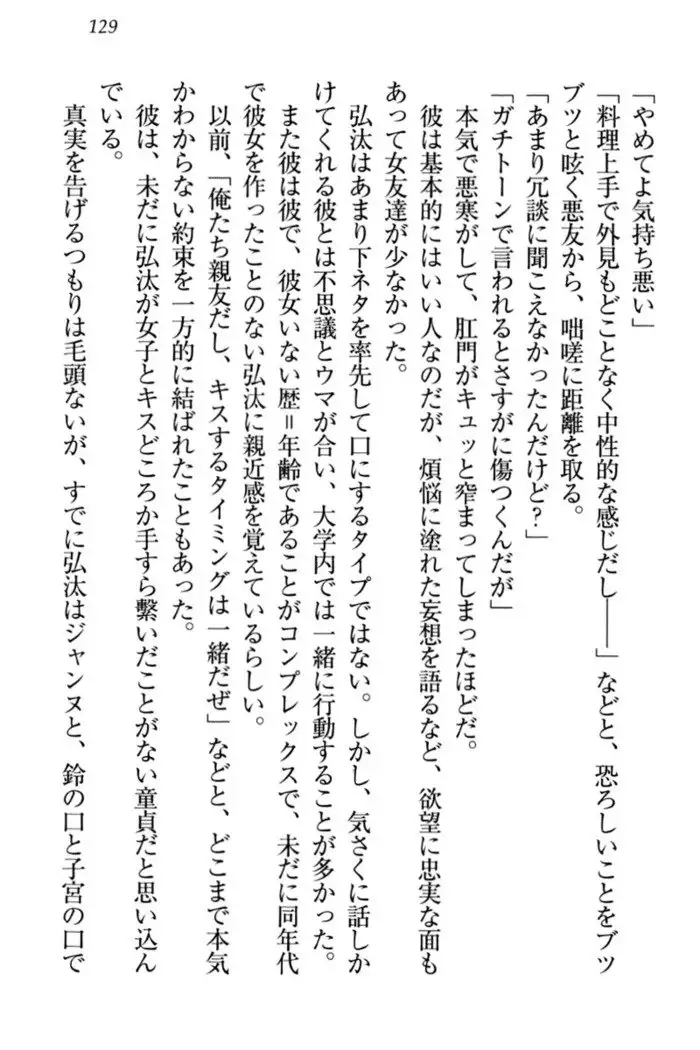 129
「やめてよ気持ち悪い」
「料理上手で外見もどことなく中性的な感じだし――」などと、恐ろしいことをブツ
ブツと呟く悪友から、咄嗟に距離を取る。
「あまり冗談に聞こえなかったんだけど?」
「ガチトーンで言われるとさすがに傷つくんだが」
本気で悪寒がして、肛門がキュッと窄まってしまったほどだ。
彼は基本的にはいい人なのだが、煩悩に塗れた妄想を語るなど、欲望に忠実な面も
あって女友達が少なかった。
弘汰はあまり下ネタを率先して口にするタイプではない。しかし、気さくに話しか
けてくれる彼とは不思議とウマが合い、大学内では一緒に行動することが多かった。
また彼は彼で、彼女いない歴=年齢であることがコンプレックスで、未だに同年代
で彼女を作ったことのない弘汰に親近感を覚えているらしい。
以前、「俺たち親友だし、キスするタイミングは一緒だぜ」などと、どこまで本気
かわからない約束を一方的に結ばれたこともあった。
彼は、未だに弘汰が女子とキスどころか手すら繋いだことがない童貞だと思い込ん
でいる。
真実を告げるつもりは毛頭ないが、すでに弘汰はジャンヌと、鈴の口と子宮の口で